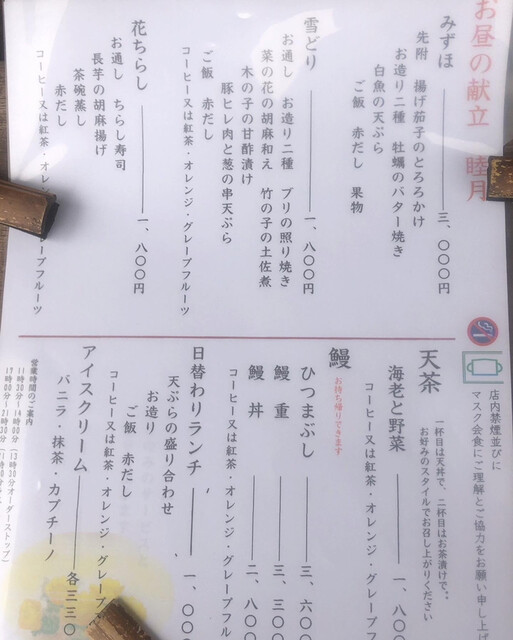 お昼の献立　睦月
みずほ　三、〇〇〇円
先附　揚げ茄子のとろろかけ
お造り二種　牡蠣のバター焼き
白魚の天ぷら
ご飯　赤だし　果物
雪どり　一、八〇〇円
お通し　お造り二種　ブリの照り焼き
菜の花の胡麻和え　竹の子の土佐煮
木の子の甘酢漬け
豚ヒレ肉と葱の串天ぷら
ご飯　赤だし
コーヒー又は紅茶・オレンジ・グレープフルーツ
花ちらし　一、八〇〇円
お通し　ちらし寿司
長芋の胡麻揚げ
茶碗蒸し
赤だし
コーヒー又は紅茶・オレ
プフルーツ
店内禁煙並びに
マスク会食にご理解とご協力をお願い申し上げ
天茶
一杯目は天丼で、二杯目はお茶漬けで‥
お好みのスタイルでお召し上がりください
海老と野菜　一、八〇
コーヒー又は紅茶・オレンジ・グレープフル
鰻
お持ち帰りできます
ひつまぶし　三、六〇〇
鰻　重　三、三〇〇
鰻　丼　二、八〇〇
コーヒー又は紅茶・オレンジ・グレープフル
日替わりランチ　一、〇〇〇
天ぷらの盛り合わせ
お造り
ご飯　赤だし
コーヒー又は紅茶・オレンジ・グレープ
アイスクリーム　各三三〇
バニラ・抹茶・カプチーノ
営業時間のご案内
11時30分～14時00分（13時30分オーダーストップ）
17時00分～21時30分